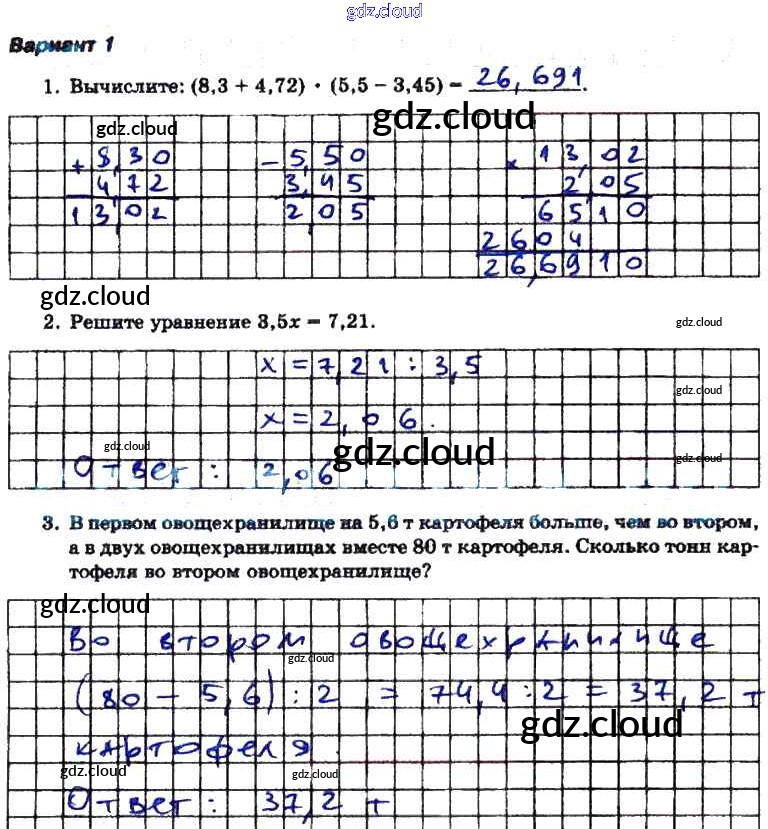 gdz.cloud
Вариант 1
1. Вычислите: (8,3 + 4,72) · (5,5 − 3,45) = 26,691.
gdz.cloud
gdz.cloud
+ 8,30 − 5,50 × 13,02
4,72 3,45 2,05
13,02 2,05 6510
2604
26,6910
gdz.cloud
2. Решите уравнение 3,5x = 7,21.
gdz.cloud
x = 7,21 : 3,5
gdz.cloud
x = 2,06.
gdz.cloud
gdz.cloud
gdz.cloud
Ответ: 2,06
3. В первом овощехранилище на 5,6 т картофеля больше, чем во втором,
а в двух овощехранилищах вместе 80 т картофеля. Сколько тонн кар-
тофеля во втором овощехранилище?
gdz.cloud
Во втором овощехранилище
gdz.cloud
(80 − 5,6) : 2 = 74,4 : 2 = 37,2 т
gdz.cloud
картофеля.
gdz.cloud
gdz.cloud
Ответ: 37,2 т